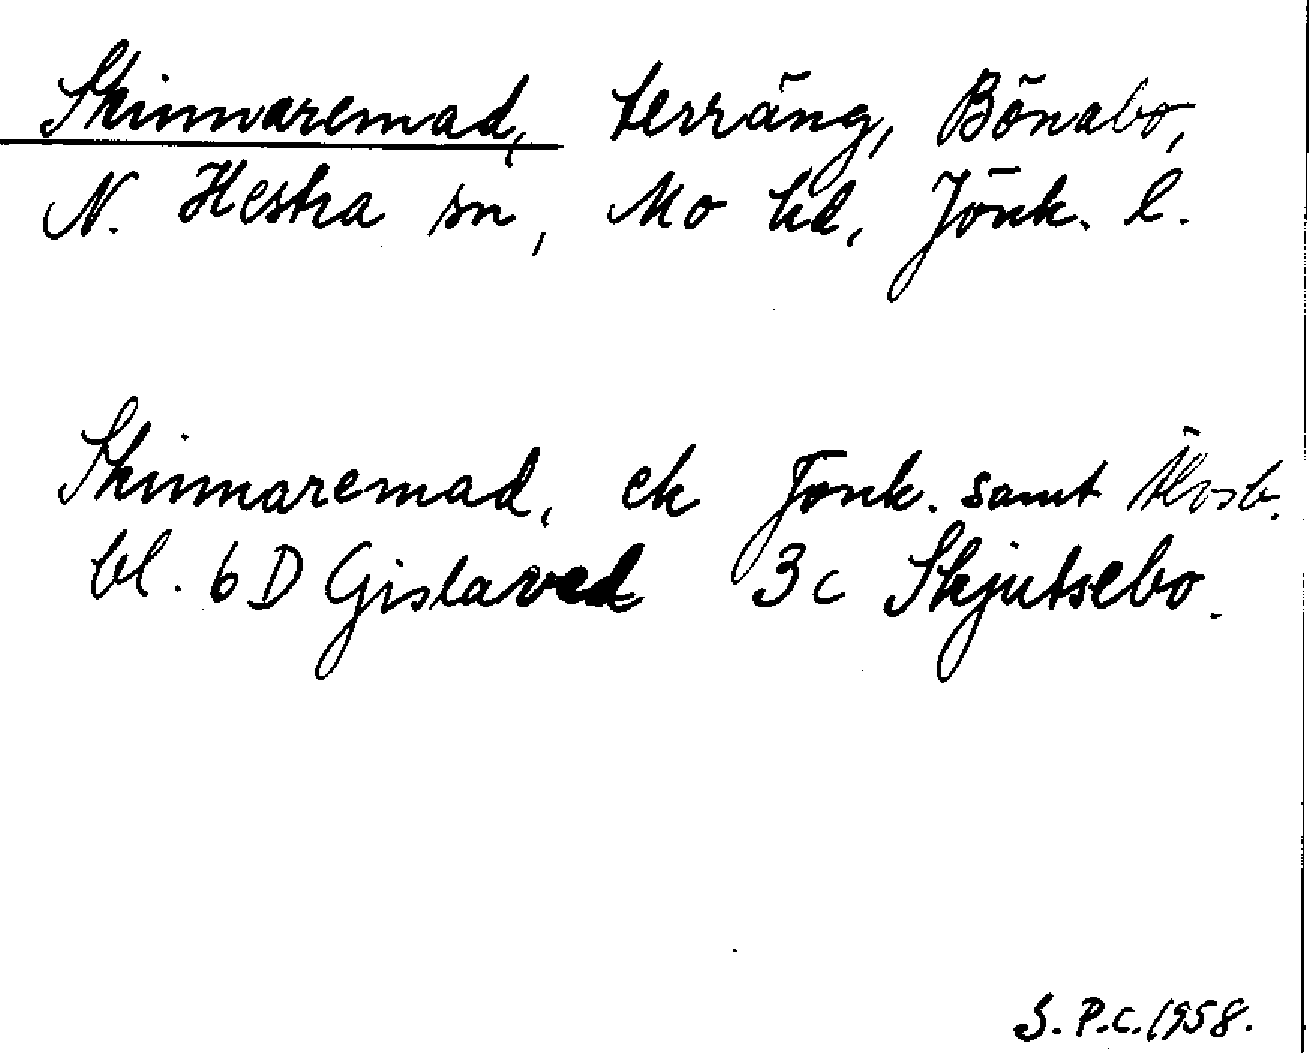 Skinnaremad, terräng, Bönabo,
N. Hestra sn, Mo hd, Jönk. l.
Skinnaremad, ek Jönk. samt Älvsb.
bl. 6 D Gislaved 3 c Skjutsebo.
S. P.C. 1958.